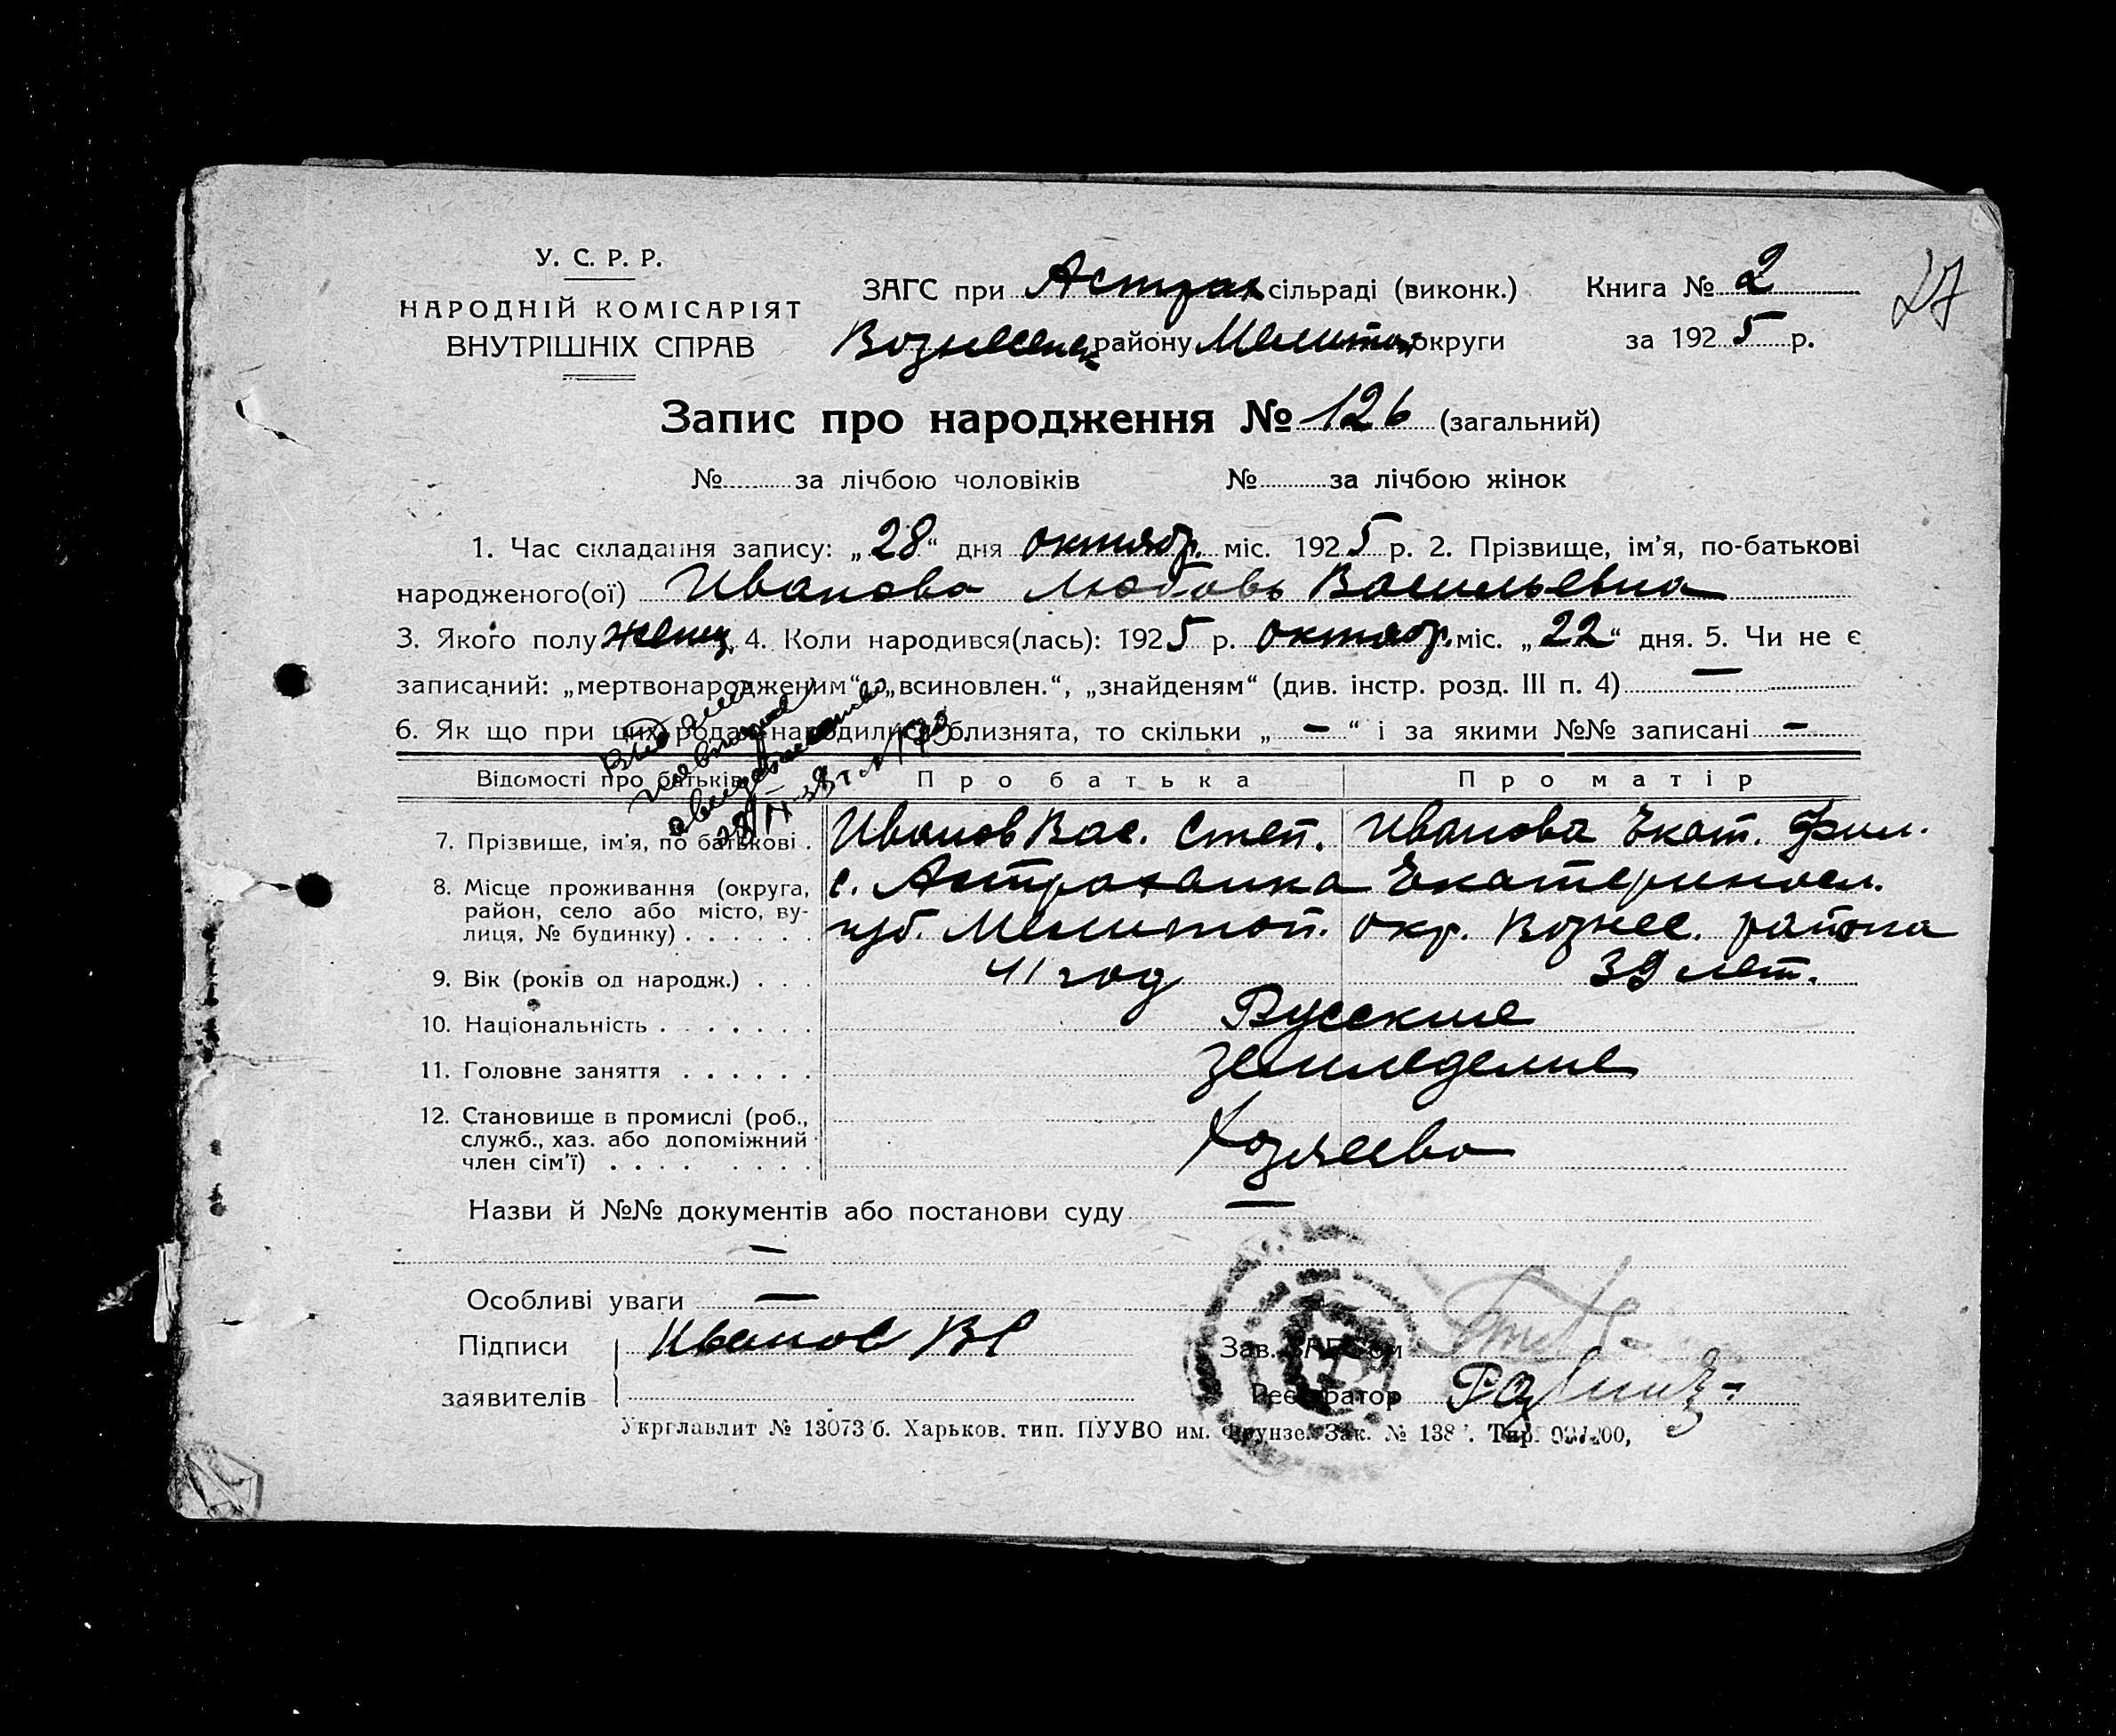 У. С. Р. Р.
НАРОДНІЙ КОМІСАРІЯТ
ВНУТРІШНІХ СПРАВ
ЗАГС при Астрах сільраді (виконк.)
Вознесенск району Мелитоп округи
Книга № 2
за 1925 р.
27
Запис про народження № 126 (загальний)
№ за лічбою чоловіків № за лічбою жінок
1. Час складання запису: „28“ дня октябр. міс. 1925 р. 2. Прізвище, ім’я, по-батькові
народженого(ої) Иванова Любовь Васильевна
3. Якого полу женщ. 4. Коли народився(лась): 1925 р. октябр. міс. „22“ дня. 5. Чи не є
записаний: „мертвонародженим“, „всиновлен.“, „знайденям“ (див. інстр. розд. III п. 4) —
6. Як що при цих родах народилися близнята, то скільки „ — “ і за якими №№ записані —
Відомості про батьків Про батька Про матір
7. Прізвище, ім’я, по батькові . Иванов Вас. Степ. Иванова Екат. Фил.
8. Місце проживання (округа, район, село або місто, вулиця, № будинку) . . . . . .
с. Астраханка Екатериносл.
губ. Мелитоп. окр. Вознес. района
9. Вік (років од народж.) . . . 41 год 39 лет.
10. Національність . . . . . . . Русские
11. Головне заняття . . . . . . земледелие
12. Становище в промислі (роб.,
служб., хаз. або допоміжний
член сім’ї) . . . . . . . .
Хозяева
Назви й №№ документів або постанови суду —
—
Особливі уваги —
Підписи Иванов ВС Зав. ЗАГСом
заявителів Реєстратор
Укрглавлит № 13073/б. Харьков. тип. ПУУВО им. Фрунзе. Зак. № 138